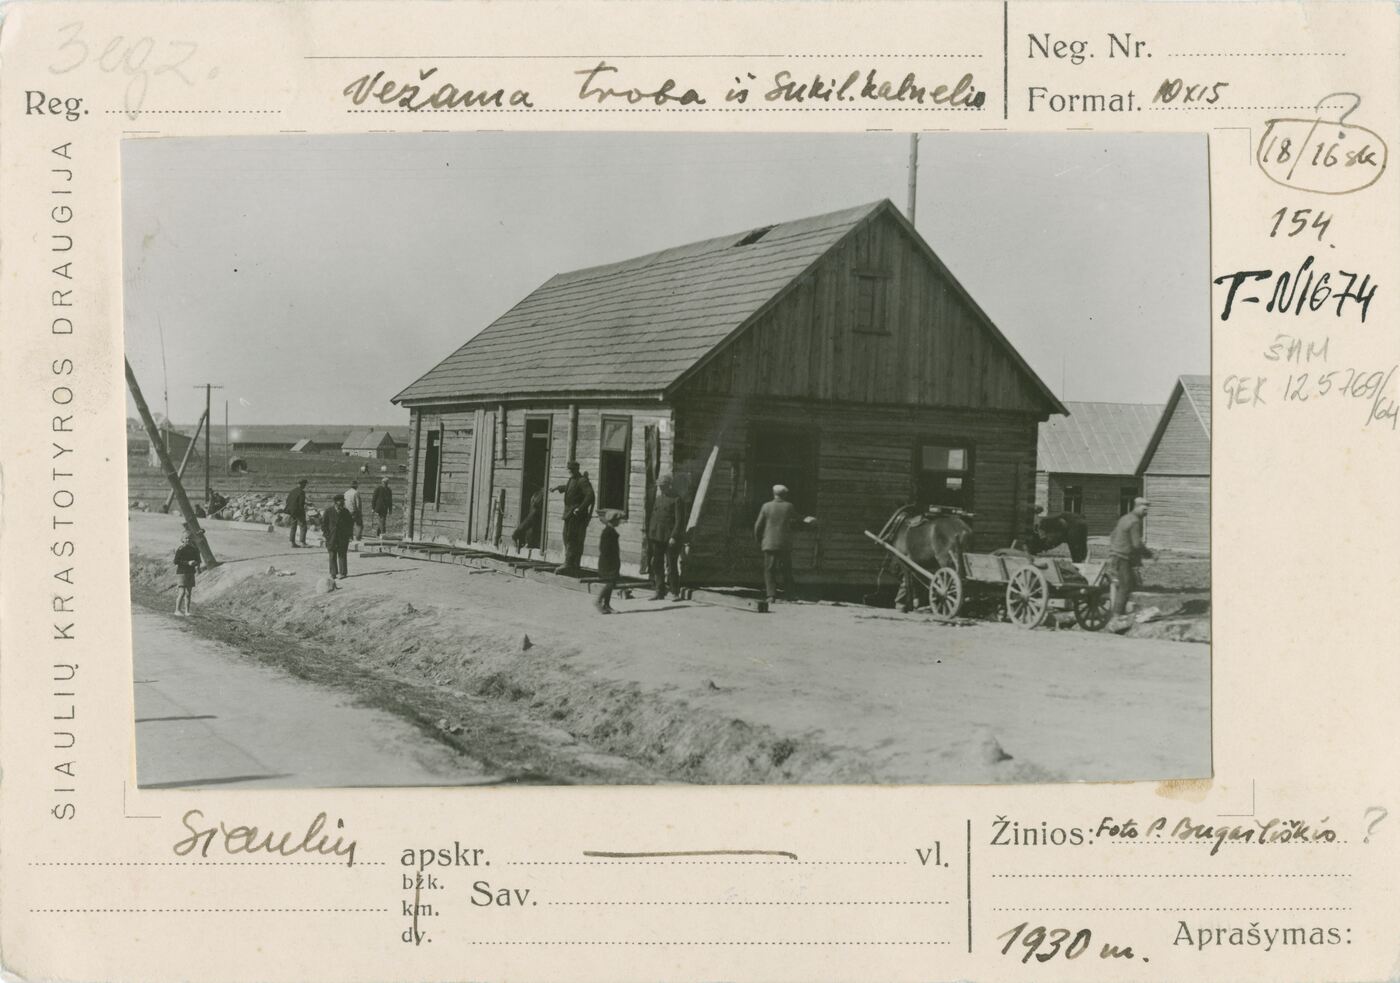 3 egz.
Reg.
Vežama troba iš Sukil. kalnelio
Neg. Nr.
Format. 10x15
?
18/16 sk
154.
T-N1674
ŠAM
GEK 125769/
/64
ŠIAULIŲ KRAŠTOTYROS DRAUGIJA
Šiaulių apskr. vl.
bžk.
km.
dv.
Sav.
Žinios: Foto P. Bugailiškio ?
1930 m.
Aprašymas: